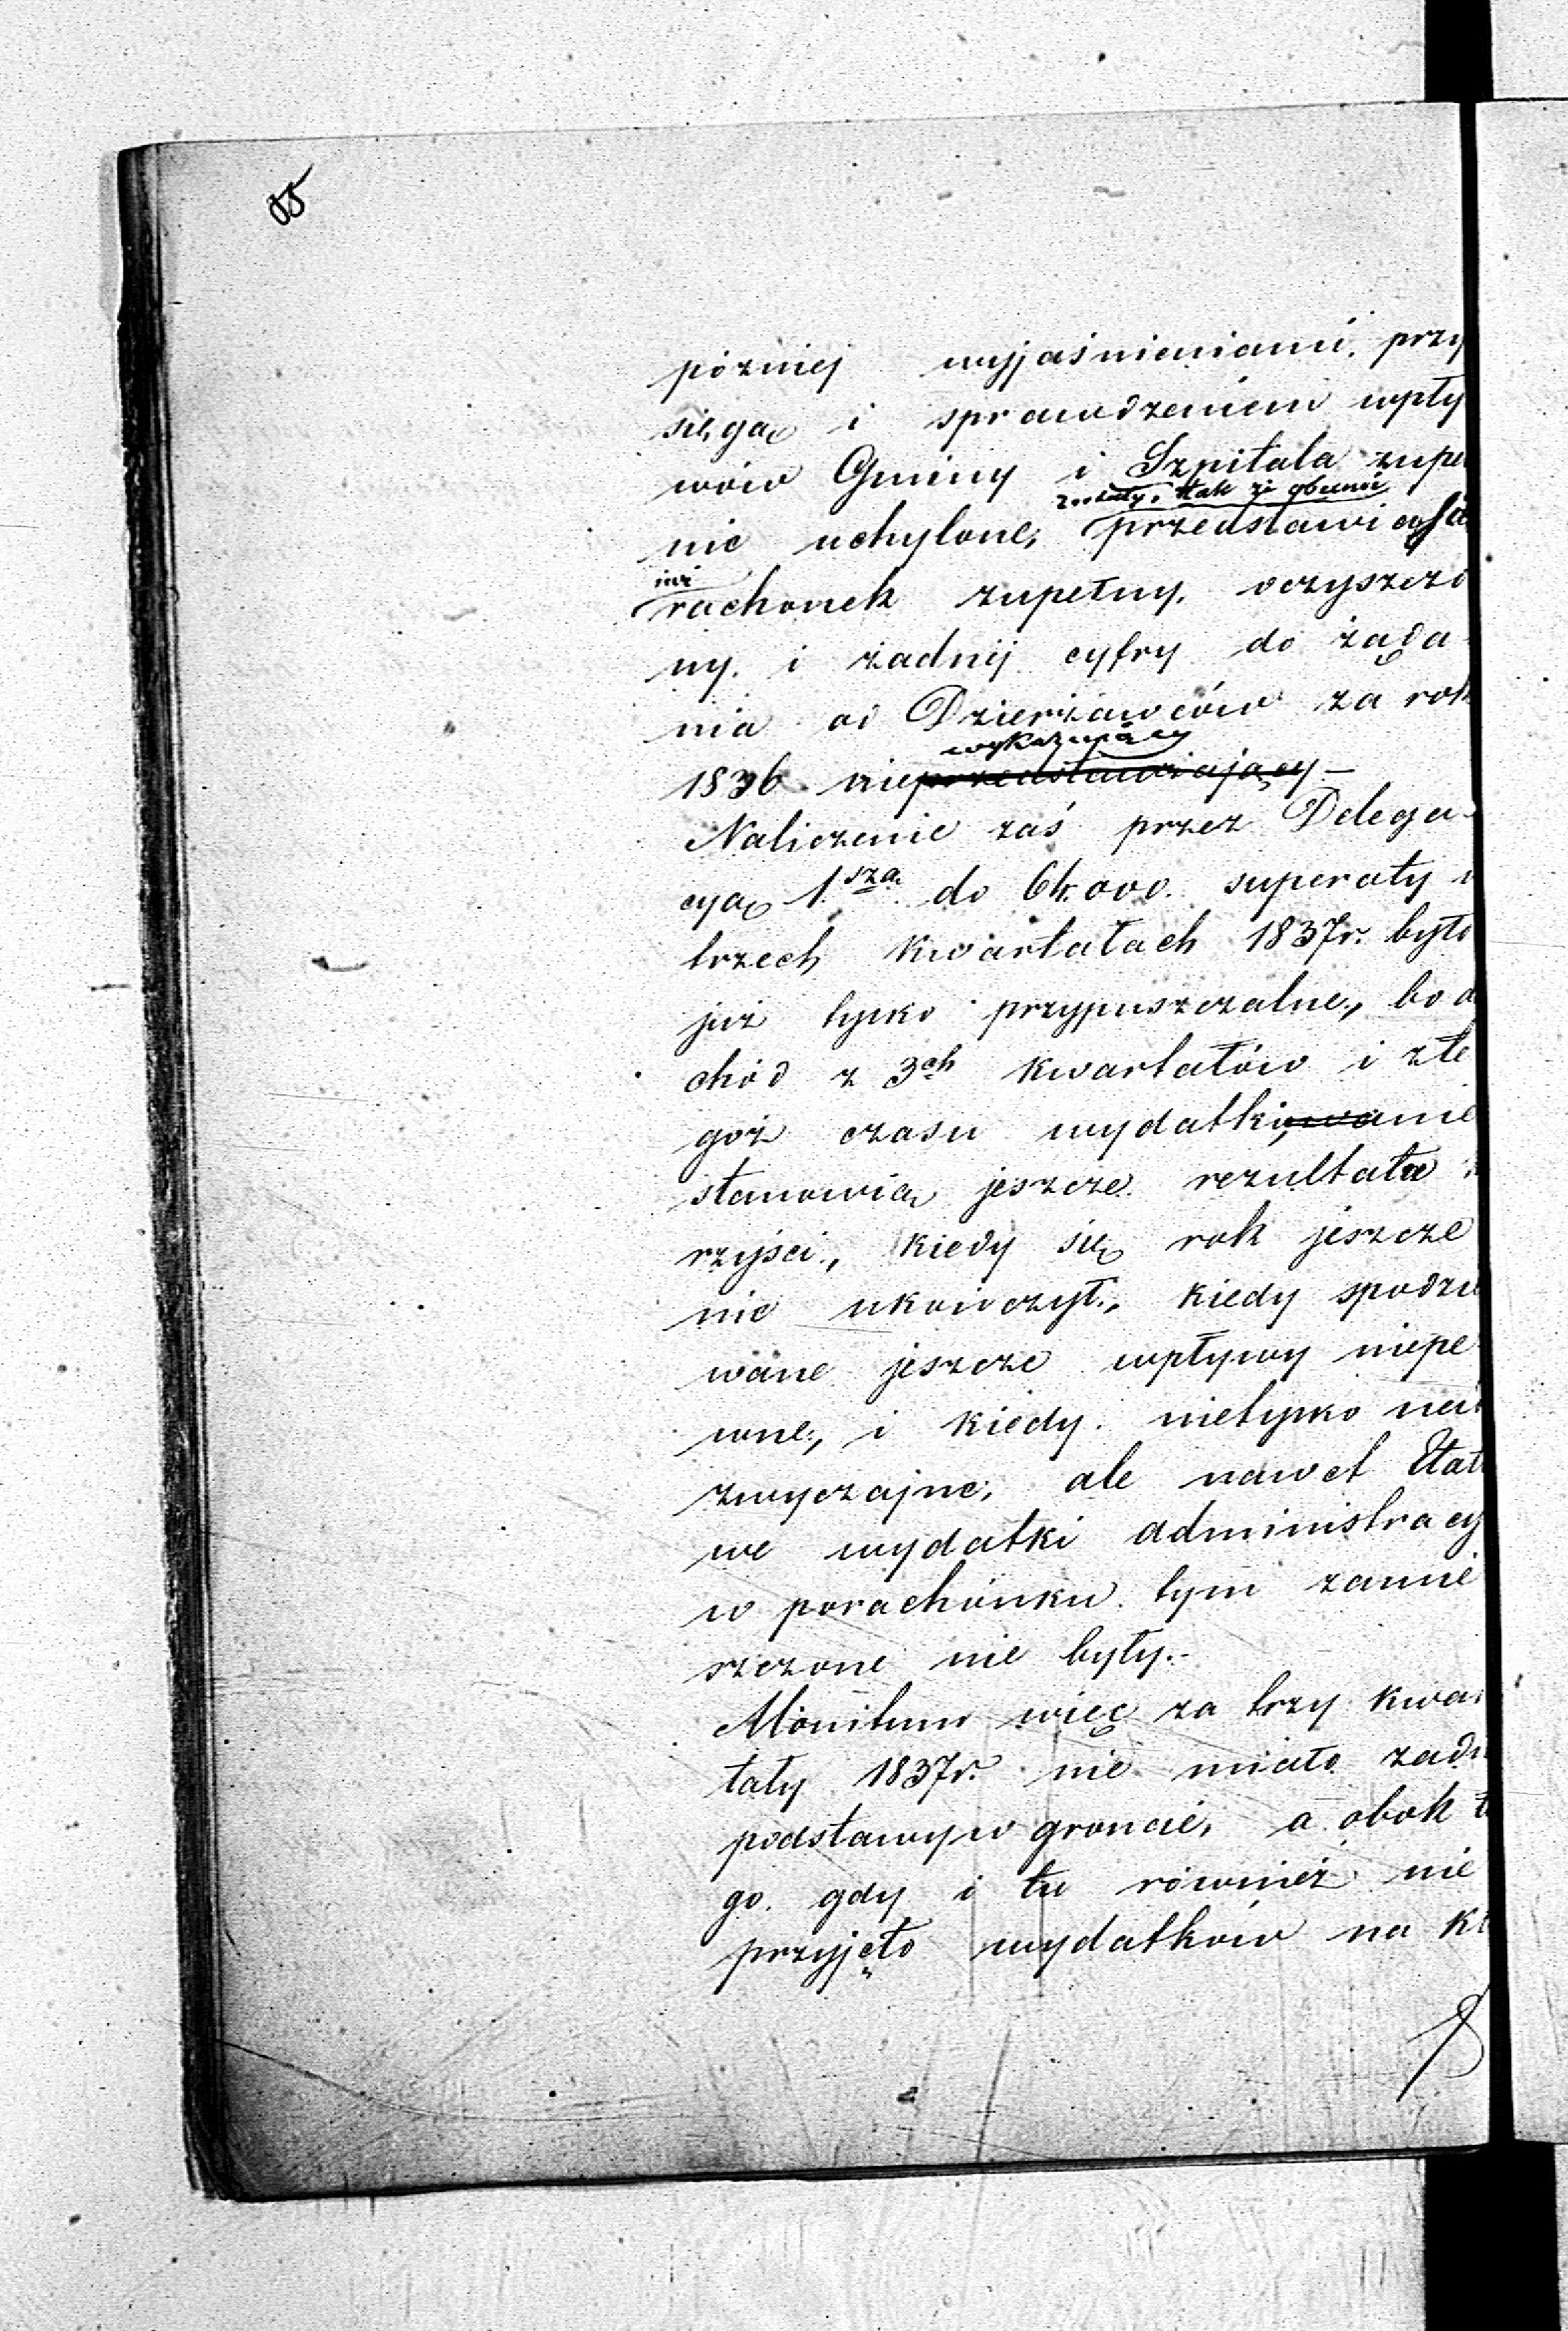 później wyjaśnieniami, przy
sięgą i sprawdzeniem wpły
wów Gminy i Szpitala zupe
zostały, tak że obecnie
nie uchylone, przedstawia się
już
rachonek zupełny, oczyszczo
ny, i żadnéj cyfry do żąda-
nia od Dzierżawców za rok
wykazujący
1836 nieprzedstawiający –
Naliczenie zaś przez Delega-
cyą 1szą do 64.000. superaty
trzech kwartałach 1837r. było
już tylko przypuszczalne, bo
chód z 3ch kwartałów i z té
goż czasu wydatki,owanie
stanowią jeszcze rezultata
rzyści, kiedy się rok jeszcze
nie ukończył, kiedy spodzie
wane jeszcze wpływy niepe
wne, i kiedy nietylko nad
zwyczajne, ale nawet Etat
we wydatki administracy
w porachónku tym zamie
szczone nie były.-
Monitum więc za trzy kwar
tały 1837r. nie miało żadn
podstawy w groncie, a obok
go gdy i tu również nie
przyjęto wydatków na